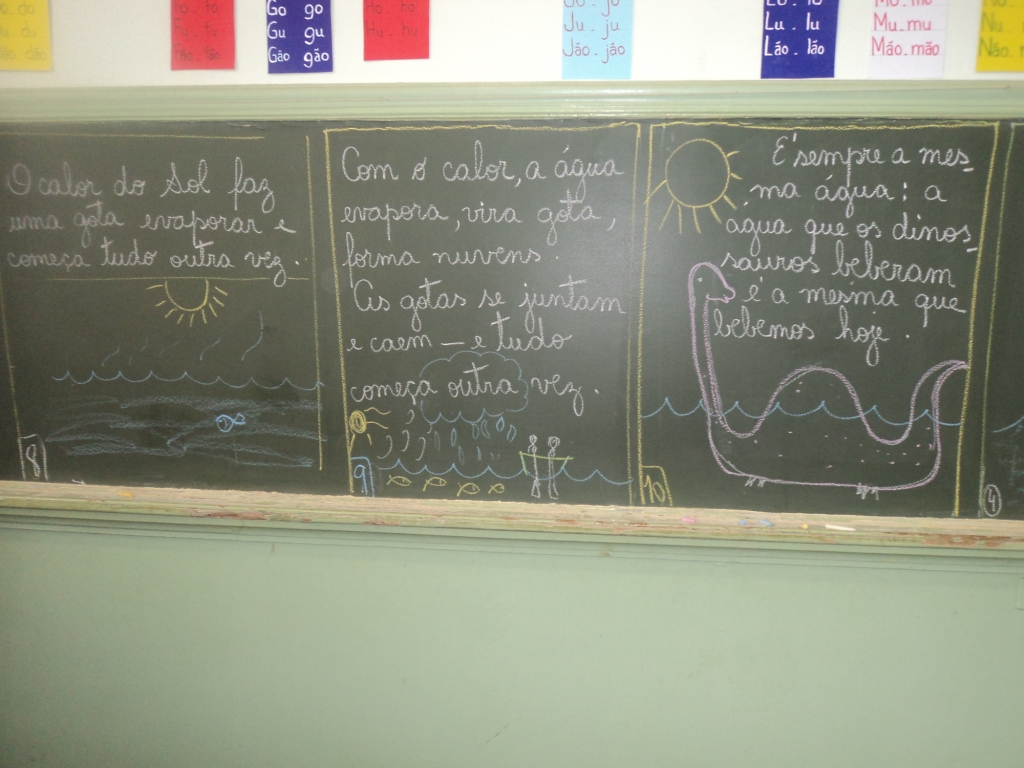 Go go
Gu gu
Gão gão
Ho ho
Hu hu
Jo jo
Ju. ju
Jão. jão
Lo. lo
Lu. lu
Lão. lão
Mo. mo
Mu. mu
Mão. mão
Nu
Não.
O calor do Sol faz
uma gota evaporar e
começa tudo outra vez.
8
Com o calor, a água
evapora, vira gota,
forma nuvens.
As gotas se juntam
e caem — e tudo
começa outra vez.
9
É sempre a mes-
ma água: a
água que os dinos-
sauros beberam
é a mesma que
bebemos hoje.
10
4